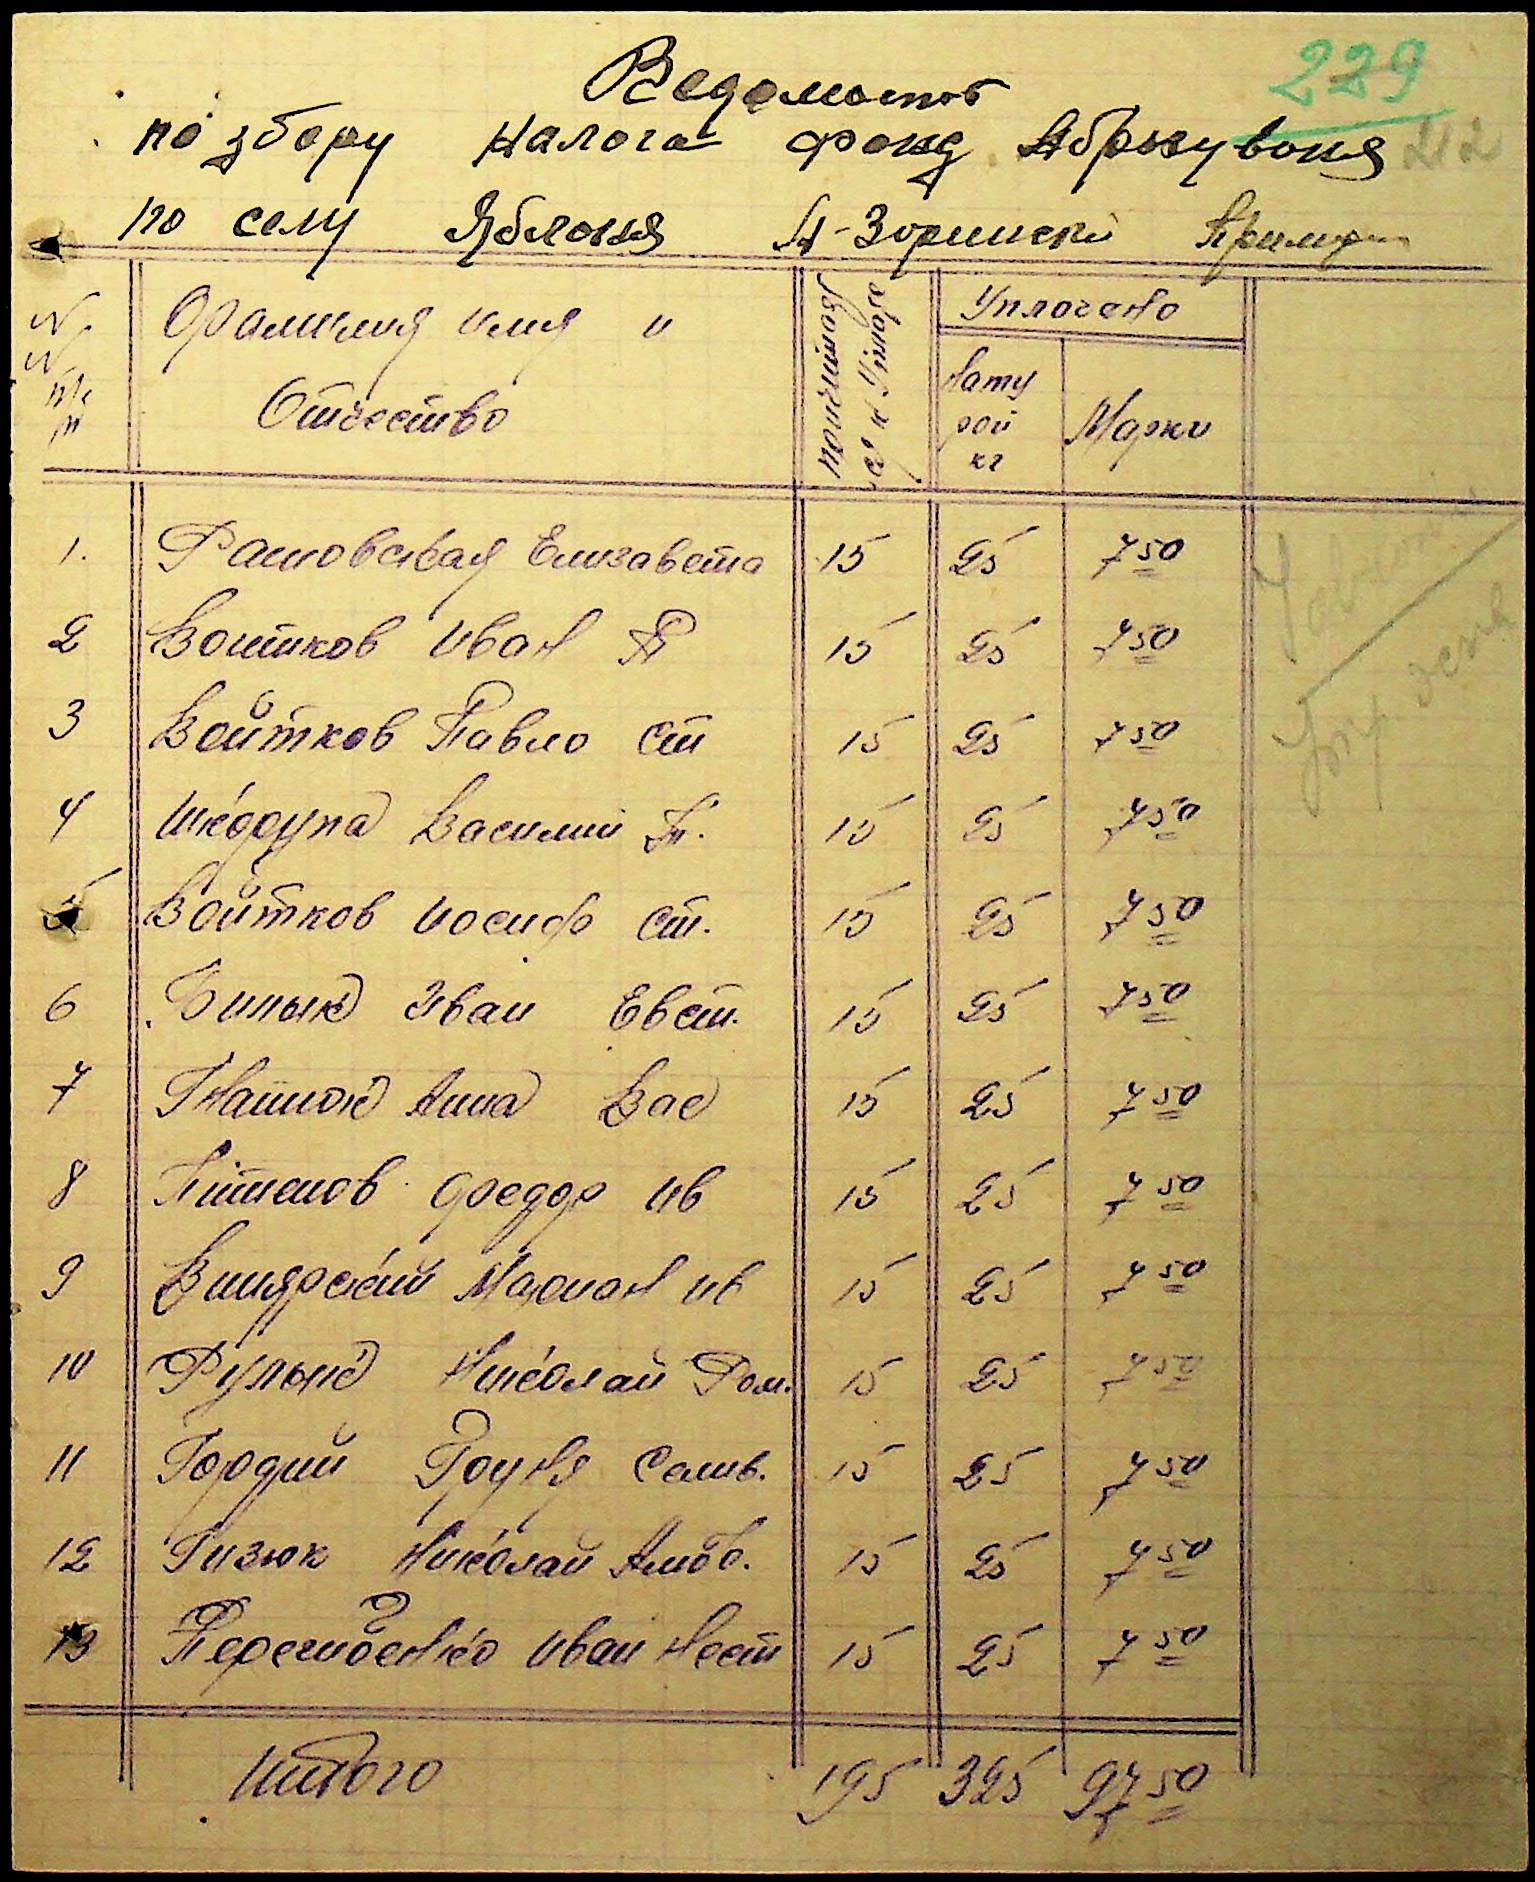 Ведомость
229
по збору налога фонд Абрызувоня 212
по селу Яблоня А-Зоринский Кримуш
N N п/п
Фамилия имя и Отчество
Уплочено
Натурой кг
Марки
1. Раковская Елизавета 15 25 7 50
2 Войтков Иван П 15 25 7 50
3 Войтков Павло Ст 15 25 7 50
4 Шкодрупа Василий П. 15 25 7 50
5 Войтков Иосиф Ст. 15 25 7 50
6 Билык Иван Евст. 15 25 7 50
7 Гнатюк Анна Вас 15 25 7 50
8 Федор Ив 15 25 7 50
9 Винярский Мариан Ив 15 25 7 50
10 Рупык Николай Ром. 15 25 7 50
11 Гордий Груня Селив. 15 25 7 50
12 Гизюк Николай 15 25 7 50
13 Иван Нест 15 25 7 50
Итого 195 325 97 50